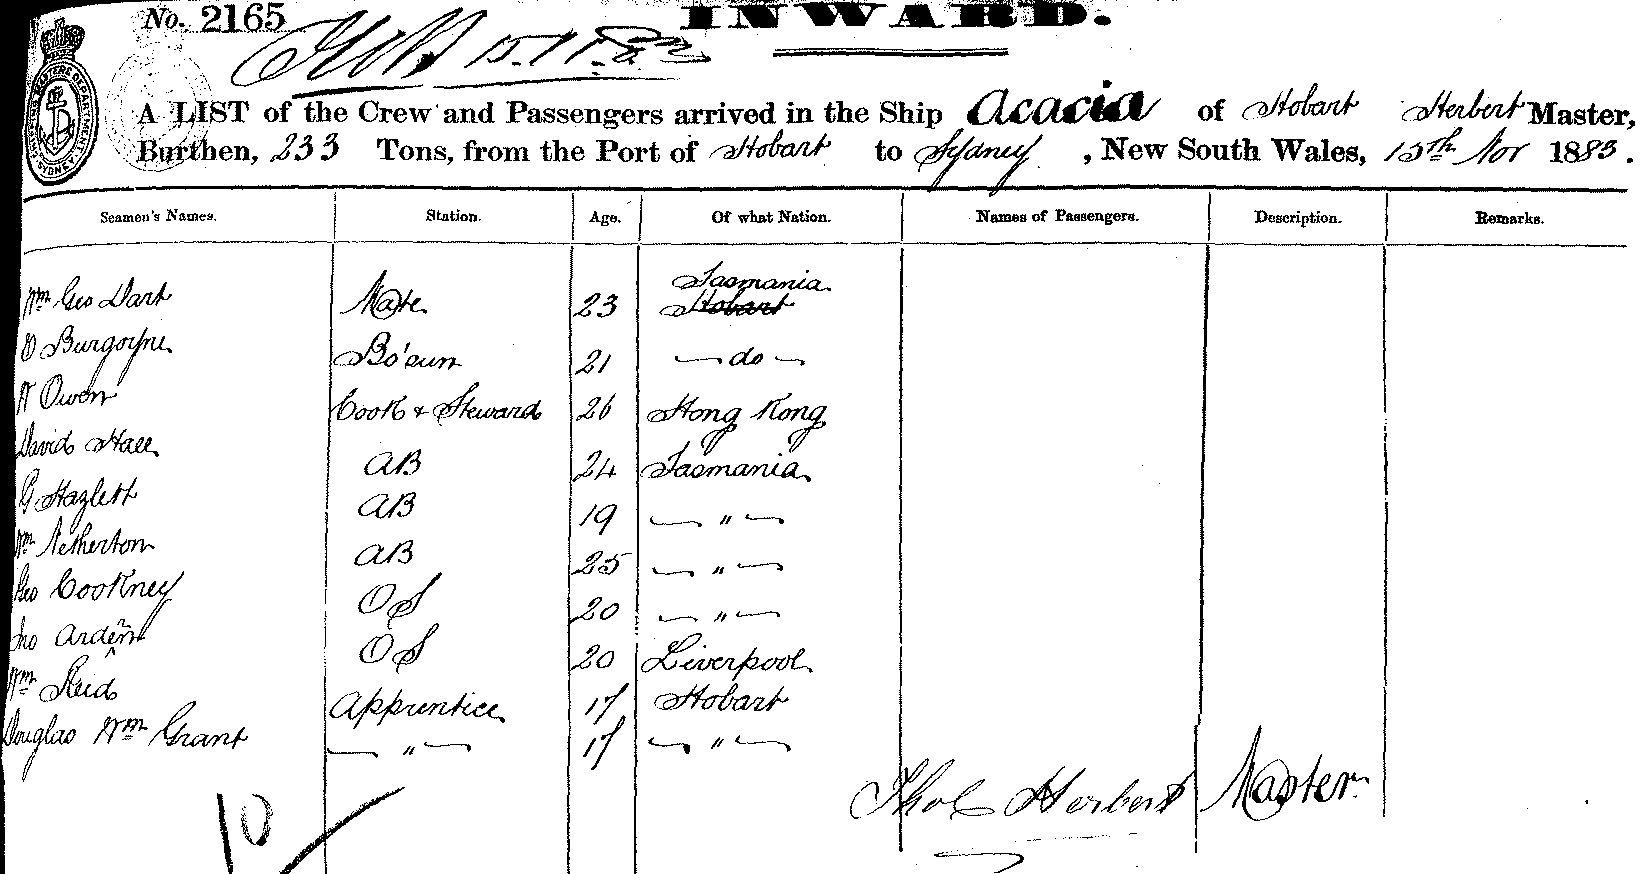 No. 2165
INWARD.
15.11.83
A LIST of the Crew and Passengers arrived in the Ship Acacia of Hobart Herbert Master,
Burthen, 233 Tons, from the Port of Hobart to Sydney, New South Wales, 15th Nov 1883.
Seamen's Names. Station. Age. Of what Nation. Names of Passengers. Description. Remarks.
Tasmania
Wm Geo Dart Mate 23 Hobart
D Burgoyne Bo'sun 21 — do —
W Owen Cook & Steward 26 Hong Kong
David Hall AB 24 Tasmania
G Hazlett AB 19 — " —
Wm Netherton AB 25 — " —
Geo Cookney OS 20 — " —
Jno Arden OS 20 Liverpool
Wm Reid Apprentice 17 Hobart
Douglas Wm Grant — " — 17 — " —
Thos Herbert Master
10